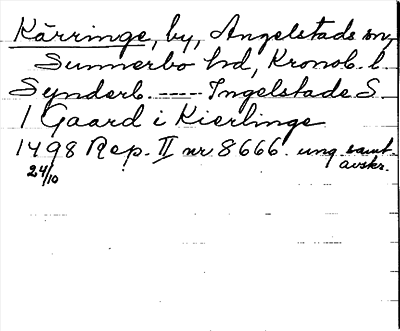 Kärringe, by, Angelstads sn,
Sunnerbo hd, Kronob. l.
Synderb. ---- Ingelstade S.
1 Gaard i Kierlinge
1498 Rep. II nr 8666. ung. samt.
24/10 avskr.